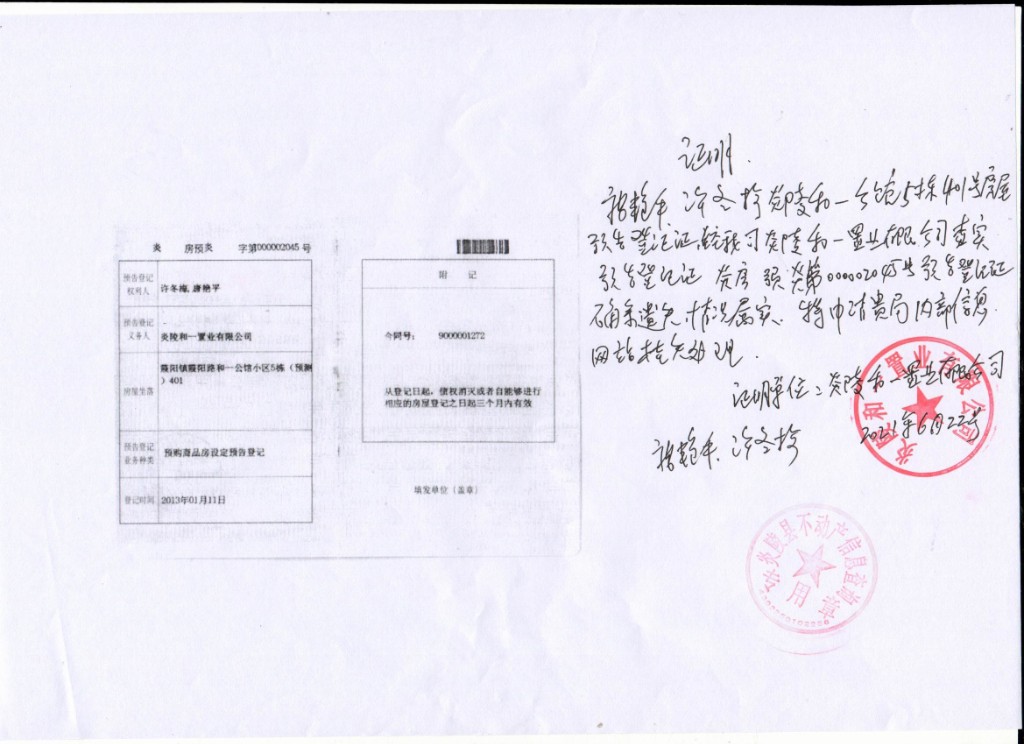 炎 房预炎 字第000002045 号
预告登记权利人
许冬梅,唐艳平
预告登记义务人
炎陵和一置业有限公司
房屋坐落
霞阳镇霞阳路和一公馆小区5栋(预测
)401
预告登记业务种类
预购商品房设定预告登记
登记时间
2013年01月11日
附 记
合同号: 9000001272
从登记日起,债权消灭或者自能够进行
相应的房屋登记之日起三个月内有效
填发单位(盖章)
证明.
许冬梅炎陵和一公馆5栋401号房屋
预告登记证,经我司炎陵和一置业有限公司查实
预告登记证 炎房预炎第000002045号预告登记证
确系遗失,情况属实。特申请贵局内部信息
网站挂失处理.
证明单位:炎陵和一置业有限公司
2021年6月22号
许冬梅
炎陵和一置业有限公司
炎陵县不动产信息查询
用章